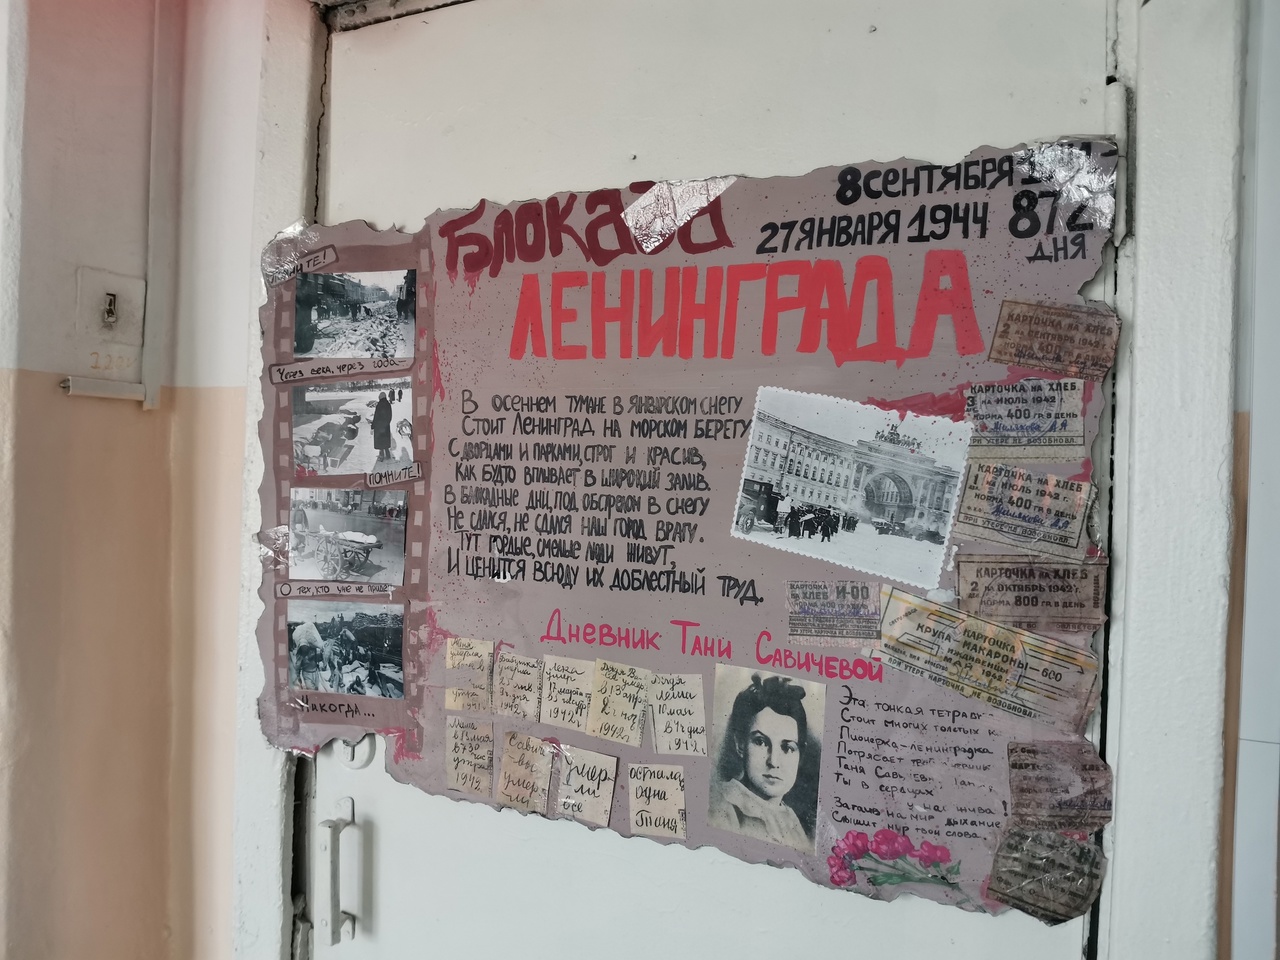 БЛОКАДА
ЛЕНИНГРАДА
8 СЕНТЯБРЯ
27 ЯНВАРЯ 1944
872
ДНЯ
Через века, через года–
ПОМНИТЕ!
О тех, кто уже не
Никогда...
В ОСЕННЕМ ТУМАНЕ В ЯНВАРСКОМ СНЕГУ
СТОИТ ЛЕНИНГРАД НА МОРСКОМ БЕРЕГУ
С ДВОРЦАМИ И ПАРКАМИ, СТРОГ И КРАСИВ,
КАК БУДТО ВПЛЫВАЕТ В ШИРОКИЙ ЗАЛИВ.
В БЛОКАДНЫЕ ДНИ, ПОД ОБСТРЕЛОМ В СНЕГУ
НЕ СДАЛСЯ, НЕ СДАЛСЯ НАШ ГОРОД ВРАГУ.
ТУТ ГОРДЫЕ, СМЕЛЫЕ ЛЮДИ ЖИВУТ,
И ЦЕНИТСЯ ВСЮДУ ИХ ДОБЛЕСТНЫЙ ТРУД.
КАРТОЧКА НА ХЛЕБ
2 НА СЕНТЯБРЬ 1942 г.
НОРМА 400
КАРТОЧКА НА ХЛЕБ
3 НА ИЮЛЬ 1942 г.
НОРМА 400 ГР. В ДЕНЬ
ПРИ УТЕРЕ НЕ ВОЗОБНОВЛ.
КАРТОЧКА НА ХЛЕБ
1 НА ИЮЛЬ 1942 г.
НОРМА 400 ГР. В ДЕНЬ
ПРИ УТЕРЕ НЕ ВОЗОБНОВЛ.
КАРТОЧКА НА ХЛЕБ
2 НА ОКТЯБРЬ 1942 г.
НОРМА 800 ГР. В ДЕНЬ
КАРТОЧКА
НА ХЛЕБ И-00
КАРТОЧКА
КРУПА - МАКАРОНЫ
ИЖДИВЕНЧЕСКАЯ
МАЙ
1942 г.
600
ПРИ УТЕРЕ КАРТОЧКА НЕ ВОЗОБНОВЛ.
Дневник Тани Савичевой
Женя
умерла
Бабушка
умерла
1942 г.
Лека
умер
17 марта
1942 г.
Дядя Вася
умер
в 13 апр
2 ч ноч
1942 г.
Дядя
Леша
10 мая
в 4 ч дня
1942 г.
Мама
в 13 мая
в 7.30
час
утра
1942
Савичевы
умерли
Умерли
все
осталась
одна
Таня
Эта тонкая тетрадь
Стоит многих толстых к
Пионерка - ленинградка
Потрясает
Таня
Ты в сердцах
у нас жива!
Затаив на миг дыханье
Слышит мир твои слова.